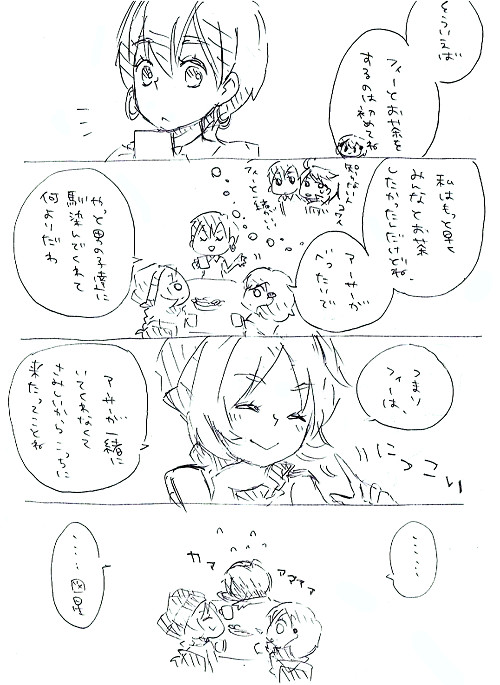 そういえば
フィーとお茶を
するのは初めてね
私はもっと早く
みんなとお茶
したかったんだけどね、
アーサーが
べったりで
フィーと一緒に
やっと男の子達に
馴染んでくれて
何よりだわ
つまり
フィーは、
アーサーが一緒に
いてくれなくて
さみしがらこっちに
来たってことね
にっこい
……
……図星
アママママ
カマ